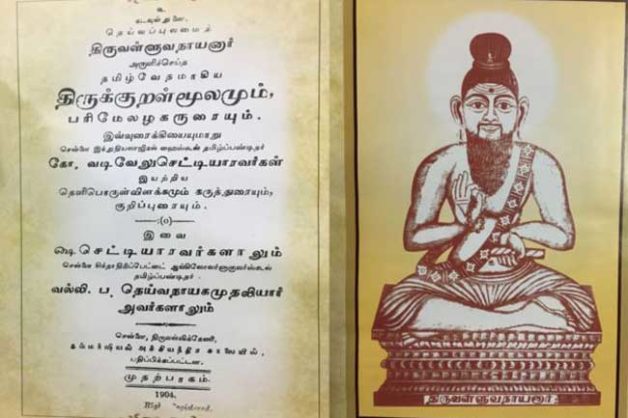 உ
கடவுள் துணை.
தெய்வப்புலமைத்
திருவள்ளுவநாயனார்
அருளிச்செய்த
தமிழ்வேதமாகிய
திருக்குறள்மூலமும்,
பரிமேலழகருரையும்.
இவ்வுரைக்கியையுமாறு
கோ. வடிவேலுசெட்டியாரவர்கள்
இயற்றிய
தெளிபொருள்விளக்கமும் கருத்துரையும்,
குறிப்புரையும்.
இவை
ஷெ செட்டியாரவர்களாலும்
தமிழ்ப்பண்டிதர்
வல்லி. ப. தெய்வநாயகமுதலியார்
அவர்களாலும்
சென்னை, திருவல்லிக்கேணி,
பதிப்பிக்கப்பட்டன.
முதற்பாகம்
1904.
திருவள்ளுவநாயனார்